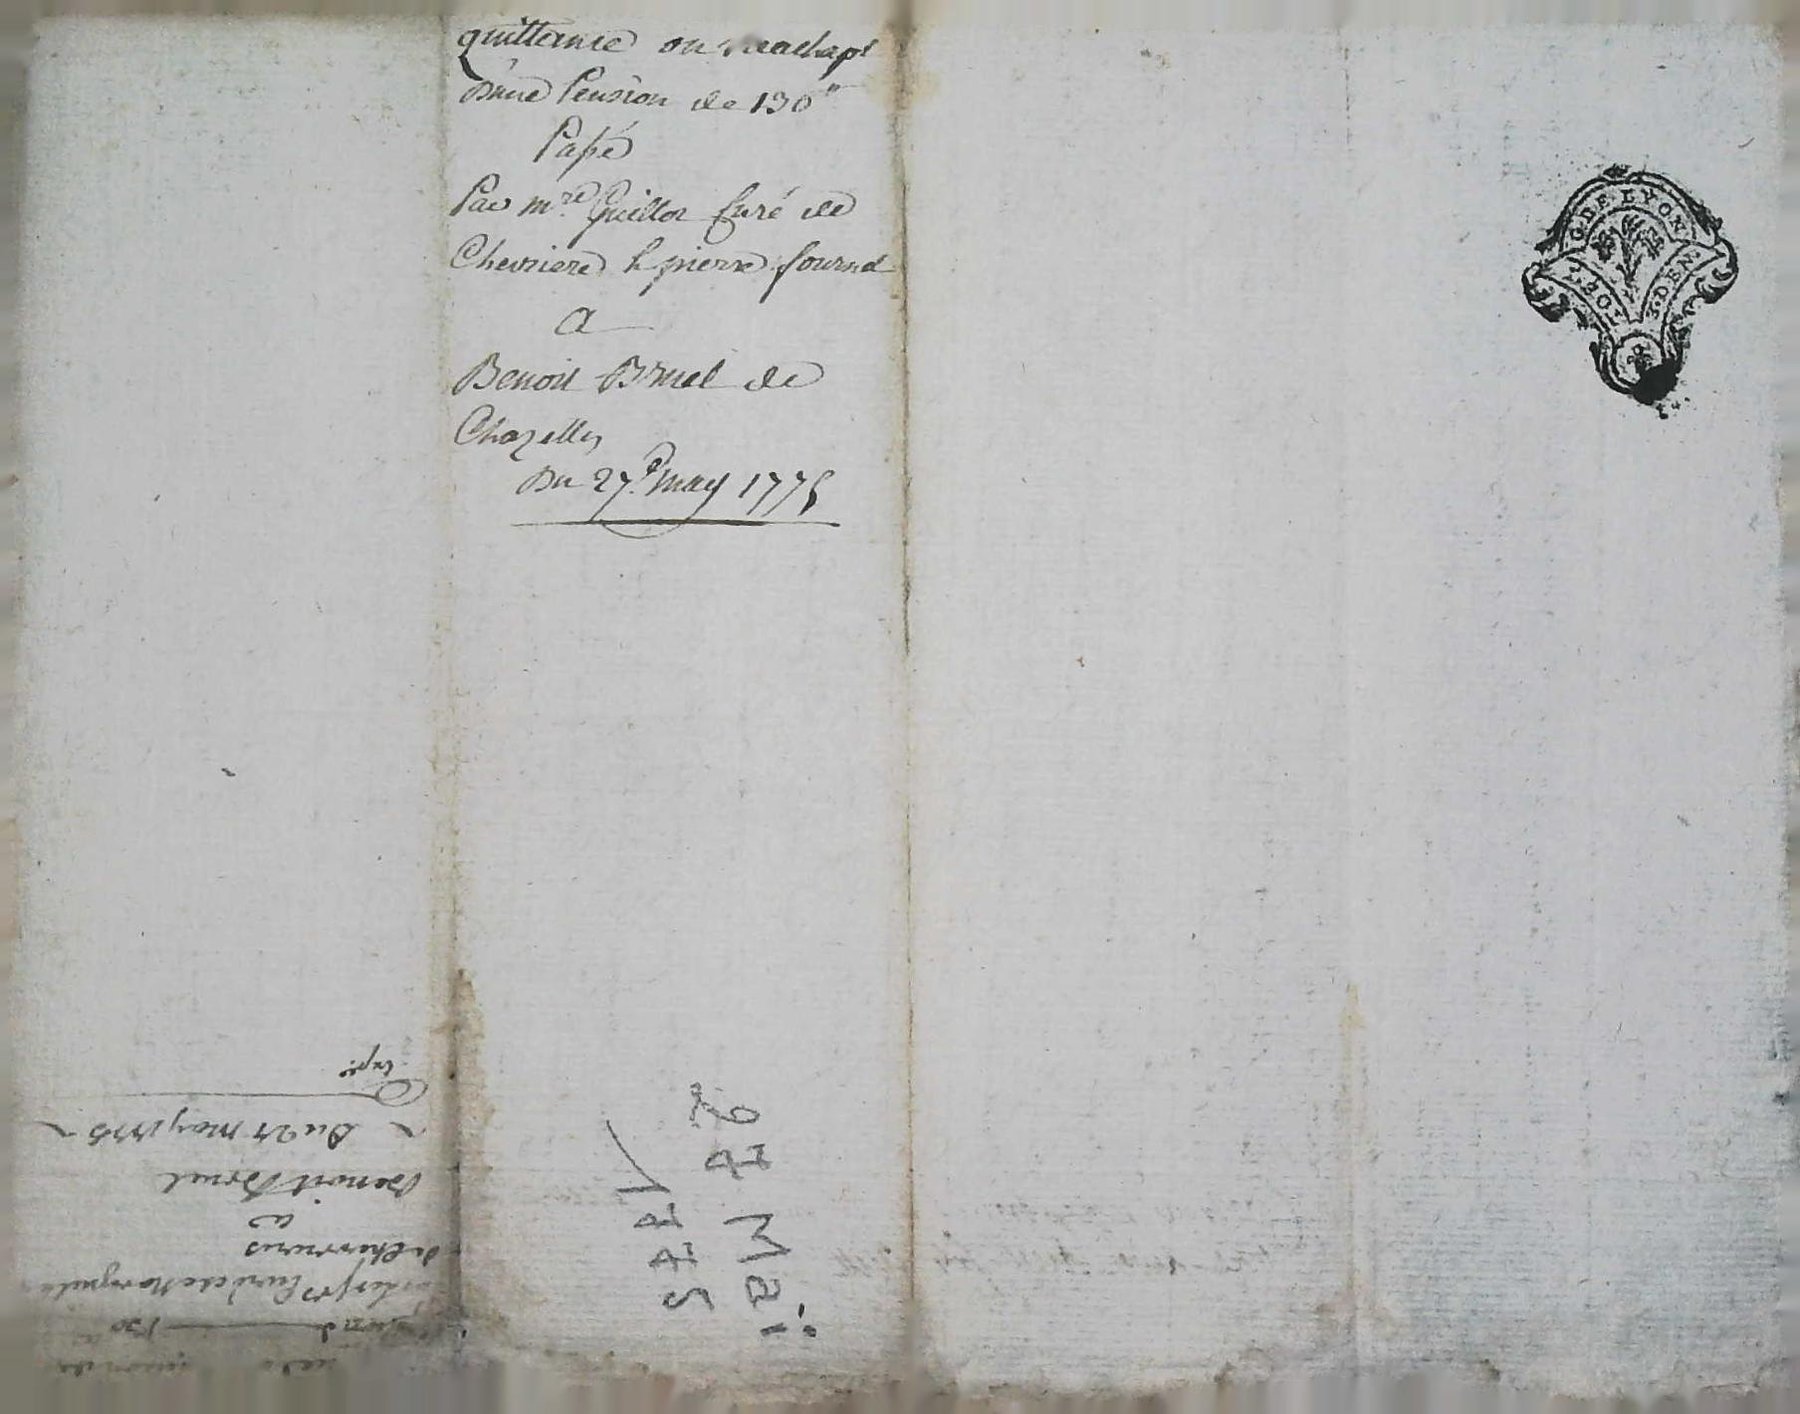 quittance ou reachapt
D'une Pension de 130"
Passé
Par mre Guillot Curé de
Chevriere & pierre fournel
A
Benoit Bruel de
Chazelles
Du 27e may 1775
G. DE LYON
1. S. 3. DEN.
27 Mai
1775
130
Curé de
de Chevrieres
a
Benoit Bruel
Du 27 may 1775
Expon